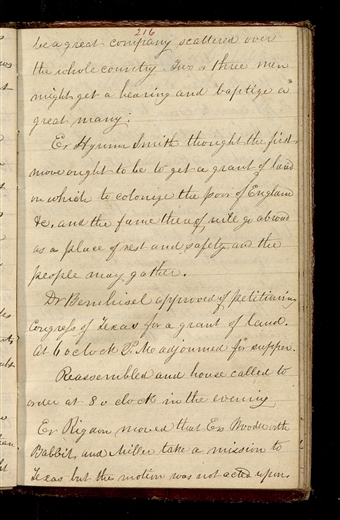 216
be a great company scattered over
the whole country. Two or three men
might get a hearing and baptize a
great many:
Er Hyrum Smith thought the first
move ought to be to get a grant of land
on which to colonize the poor of England
&c. and the fame thereof will go abroad
as a place of rest and safety and the
people may gather.
Dr Bernhisel approved of petitioning
Congress of Texas for a grant of land.
At 6 oclock P. M. adjourned for supper.
Reassembled and house called to
order at 8 o clock in the evening
Er Rigdon moved that Ers Woodworth
Babbit, and Miller take a mission to
Texas but the motion was not acted upon.